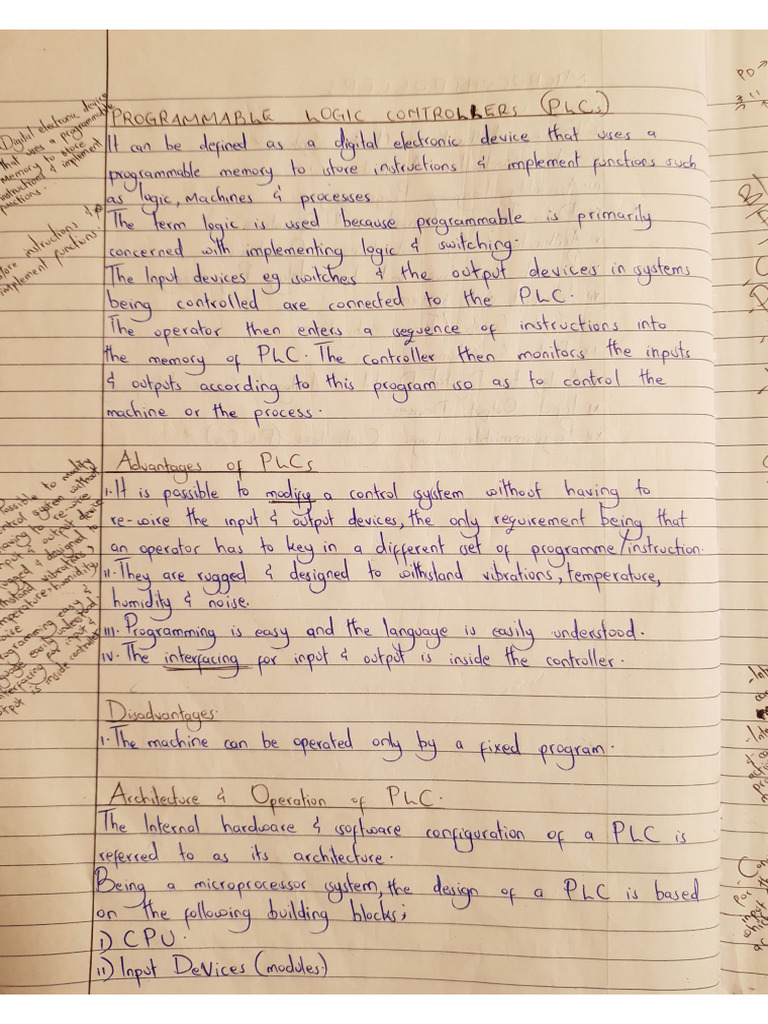 PROGRAMMABLE LOGIC CONTROLLERS (PLCs)
It can be defined as a digital electronic device that uses a
programmable memory to store instructions & implement functions such
as logic, machines & processes.
The term logic is used because programmable is primarily
concerned with implementing logic & switching.
The Input devices eg switches & the output devices in systems
being controlled are connected to the PLC.
The operator then enters a sequence of instructions into
the memory of PLC. The controller then monitors the inputs
& outputs according to this program so as to control the
machine or the process.
Advantages of PLCs
i. It is possible to modify a control system without having to
re-wire the input & output devices, the only requirement being that
an operator has to key in a different set of programme/instruction.
ii. They are rugged & designed to withstand vibrations, temperature,
humidity & noise.
iii. Programming is easy and the language is easily understood.
iv. The interfacing for input & output is inside the controller.
Disadvantages.
i. The machine can be operated only by a fixed program.
Architecture & Operation of PLC.
The Internal hardware & software configuration of a PLC is
referred to as its architecture.
Being a microprocessor system, the design of a PLC is based
on the following building blocks;
i) CPU.
ii) Input Devices (modules)
Digital electronic device
that uses a programmable
memory to store
instructions & implement
functions.
store instructions &
implement functions.
Possible to modify
control system without
having to re-wire
input & output device
rugged & designed to
withstand vibrations,
temperature, humidity,
noise
programming easy &
language easily understood
interfacing for input &
output is inside controller